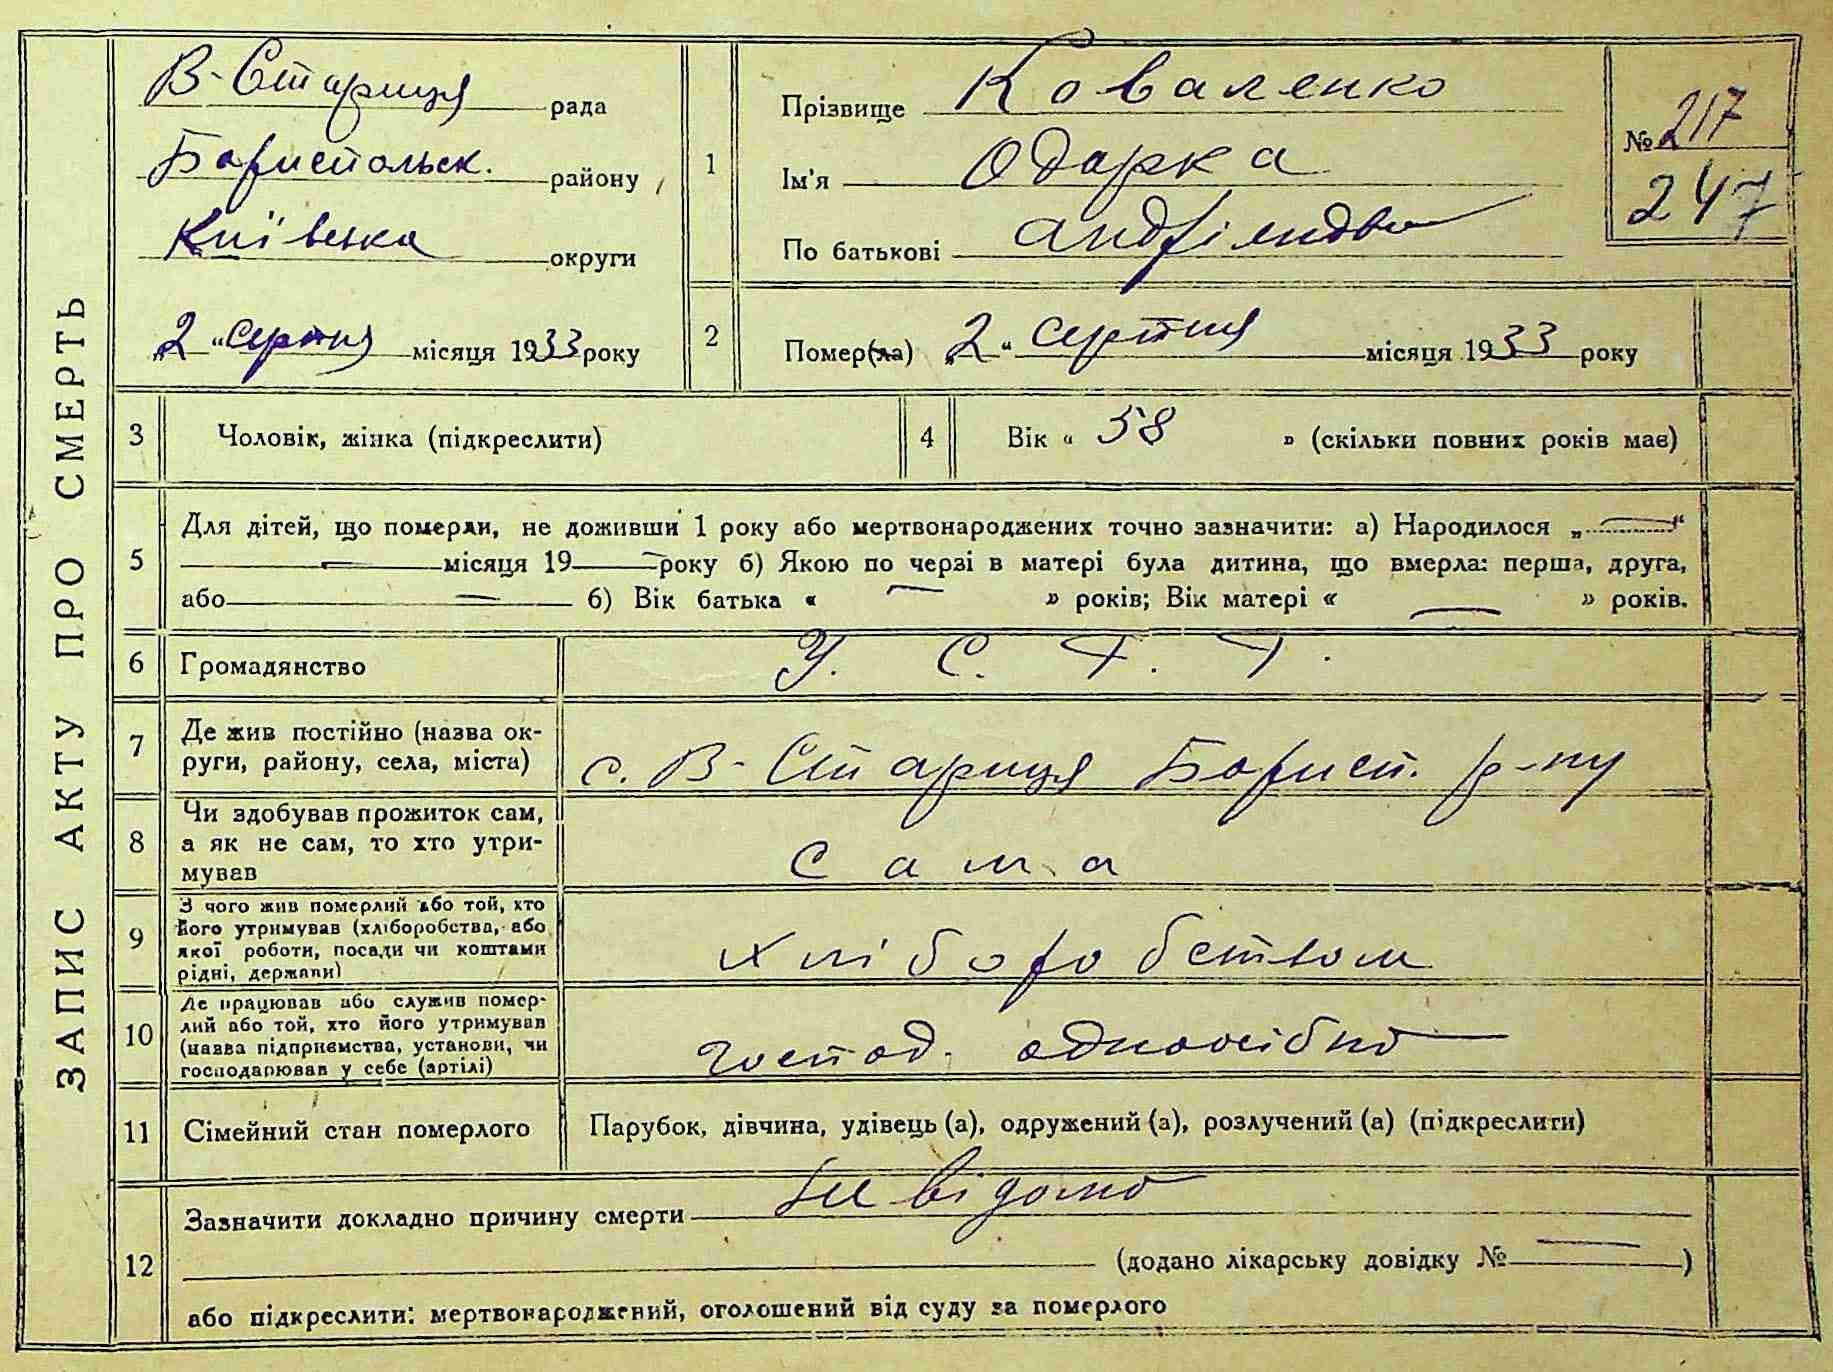 ЗАПИС АКТУ ПРО СМЕРТЬ
В-Стариця рада
Бориспольск. району
Київська округи
„2“ серпня місяця 1933 року
1
Прізвище Коваленко
Ім'я Одарка
По батькові
№ 217
247
2
Помер(ла) „2“ серпня місяця 1933 року
3 Чоловік, жінка (підкреслити)
4 Вік « 58 » (скільки повних років має)
5
Для дітей, що померли, не доживши 1 року або мертвонароджених точно зазначити: а) Народилося „—“
— місяця 19— року б) Якою по черзі в матері була дитина, що вмерла: перша, друга,
або — б) Вік батька « — » років; Вік матері « — » років.
6 Громадянство У. С. Р. Р.
7 Де жив постійно (назва ок-
руги, району, села, міста) с. В-Стариця Борисп. р-ну
8 Чи здобував прожиток сам,
а як не сам, то хто утри-
мував
сама
9 З чого жив померлий або той, хто
його утримував (хліборобства, або
якої роботи, посади чи коштами
рідні, держави)
хліборобством
10 Де працював або служив помер-
лий або той, хто його утримував
(назва підприємства, установи, чи
господарював у себе (артілі)
господ. одноосібно
11 Сімейний стан померлого Парубок, дівчина, удівець (а), одружений (а), розлучений (а) (підкреслити)
12
Зазначити докладно причину смерти невідомо
(додано лікарську довідку № — )
або підкреслити: мертвонароджений, оголошений від суду за померлого